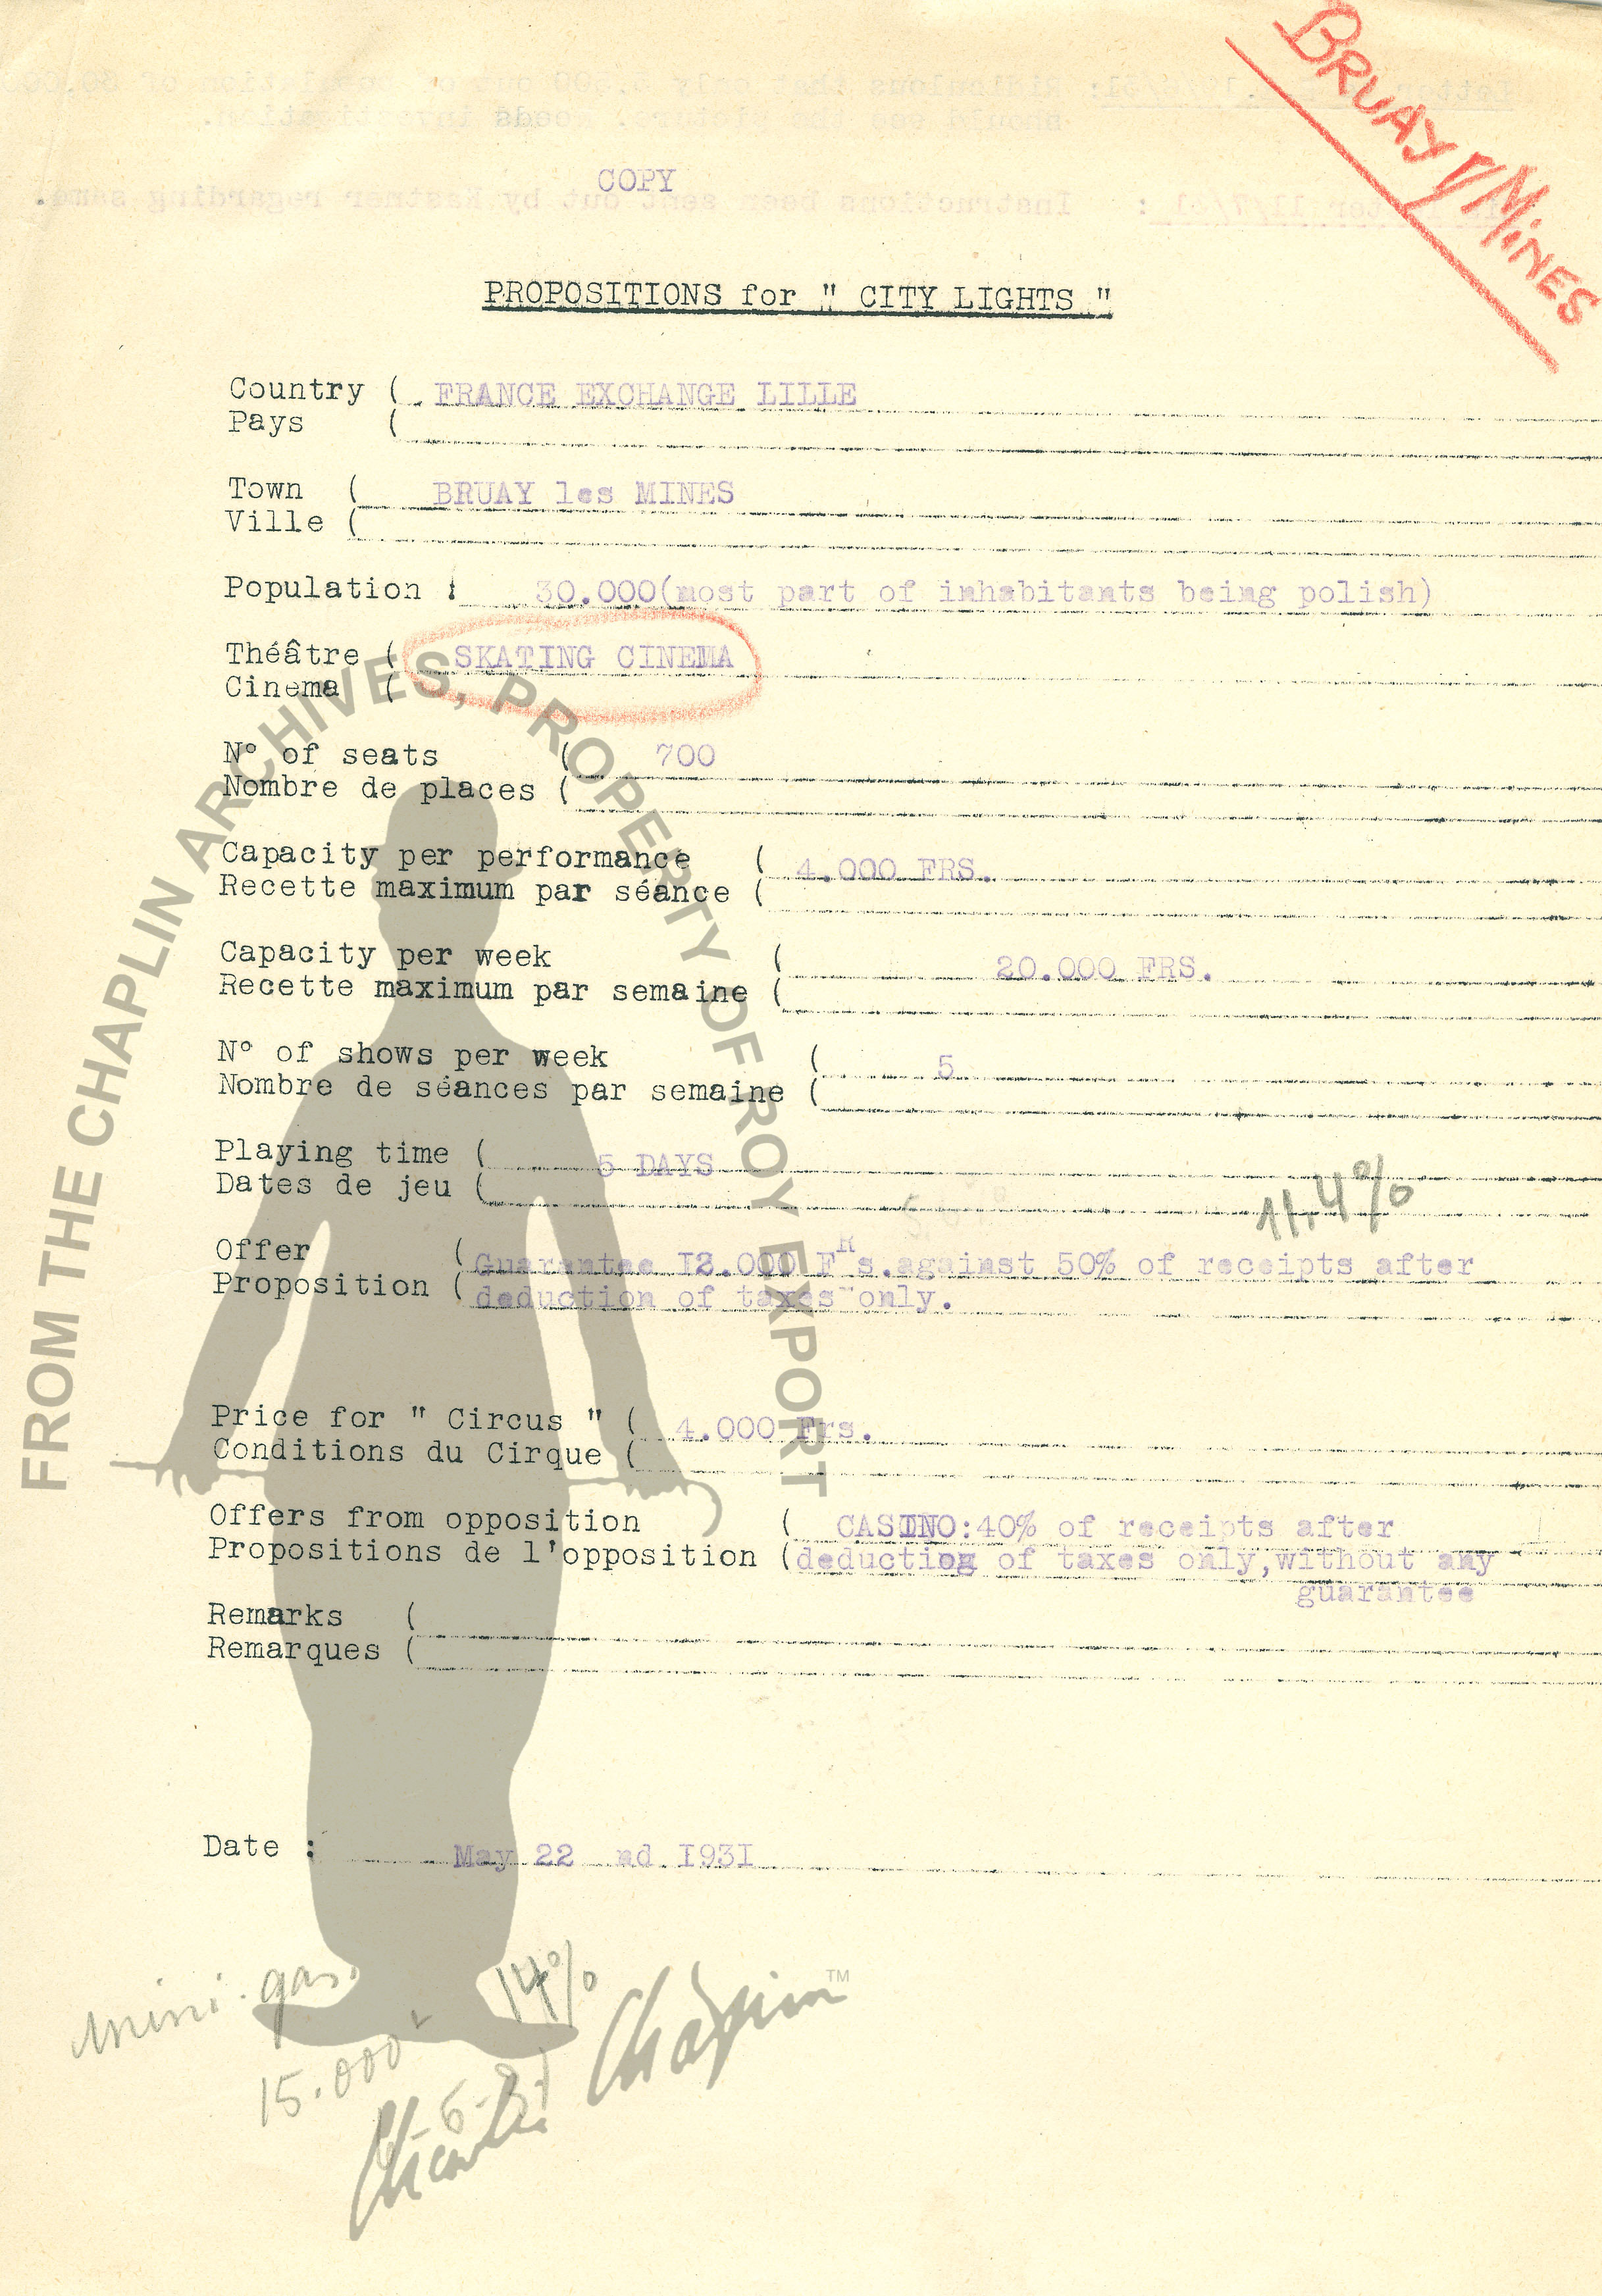 BRUAY s/MINES
COPY
PROPOSITIONS for " CITY LIGHTS "
Country ( FRANCE EXCHANGE LILLE
Pays (
Town ( BRUAY les MINES
Ville (
Population : 30.000(most part of inhabitants being polish)
Théâtre ( SKATING CINEMA
Cinema (
N° of seats ( 700
Nombre de places (
Capacity per performance ( 4.000 FRS.
Recette maximum par séance (
Capacity per week ( 20.000 FRS.
Recette maximum par semaine (
N° of shows per week ( 5
Nombre de séances par semaine (
Playing time ( 5 DAYS
Dates de jeu (
11,4%
Offer ( Guarantee I2.000 FRs.against 50% of receipts after
Proposition ( deduction of taxes only.
Price for " Circus " ( 4.000 Frs.
Conditions du Cirque (
Offers from opposition ( CASINO:40% of receipts after
Propositions de l'opposition (deduction of taxes only,without any
guarantee
Remarks (
Remarques (
Date : May 22 nd I93I
mini. gar. 14%
15.000
6-31
Charlie Chaplin™
FROM THE CHAPLIN ARCHIVES, PROPERTY OF ROY EXPORT